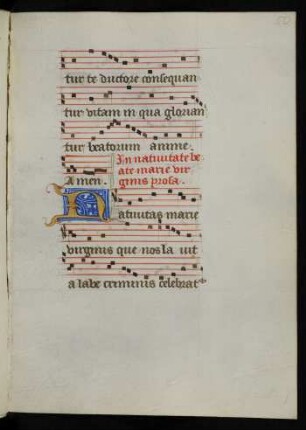 tur te ductore consequan
tur vitam in qua glorian
tur beatorum anime.
Amen.
In nativitate be
ate marie vir
ginis prosa.
Nativitas marie
virginis que nos la vit
a labe criminis celebrat